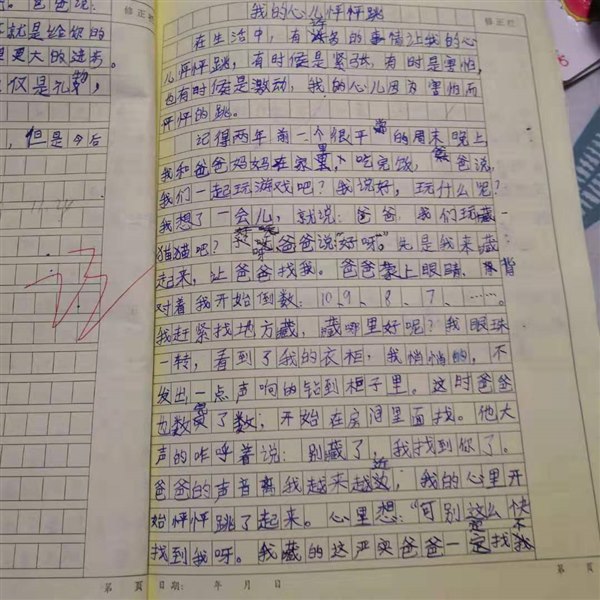 爸爸说：
就是给你的
更大的进步。
仅是礼物，
，但是今后
修正栏
修正栏
我的心儿怦怦跳
在生活中，有许多的事情让我的心
儿怦怦跳，有时侯是紧张，有时是害怕，
也有时侯是激动，我的心儿因为害怕而
怦怦的跳。
记得两年前一个很平常的周末晚上
我和爸爸妈妈在家里，吃完饭，爸爸说，
我们一起玩游戏吧？我说好，玩什么呢？
我想了一会儿，就说：爸爸，我们玩藏
猫猫吧？爸爸说"好呀"。先是我来藏
起来，让爸爸找我。爸爸蒙上眼睛，背
对着我开始倒数：10、9、8、7、……。
我赶紧找地方藏，藏哪里好呢？我眼珠
一转，看到了我的衣柜，我悄悄的，不
发出一点声响的钻到柜子里。这时爸爸
也数完了数，开始在房间里面找。他大
声的咋呼着说：别藏了，我找到你了。
爸爸的声音离我越来越近，我的心里开
始怦怦跳了起来。心里想："可别这么快
找到我呀。我藏的这严实爸爸一定找不
第 页 日期： 年 月 日
第 页